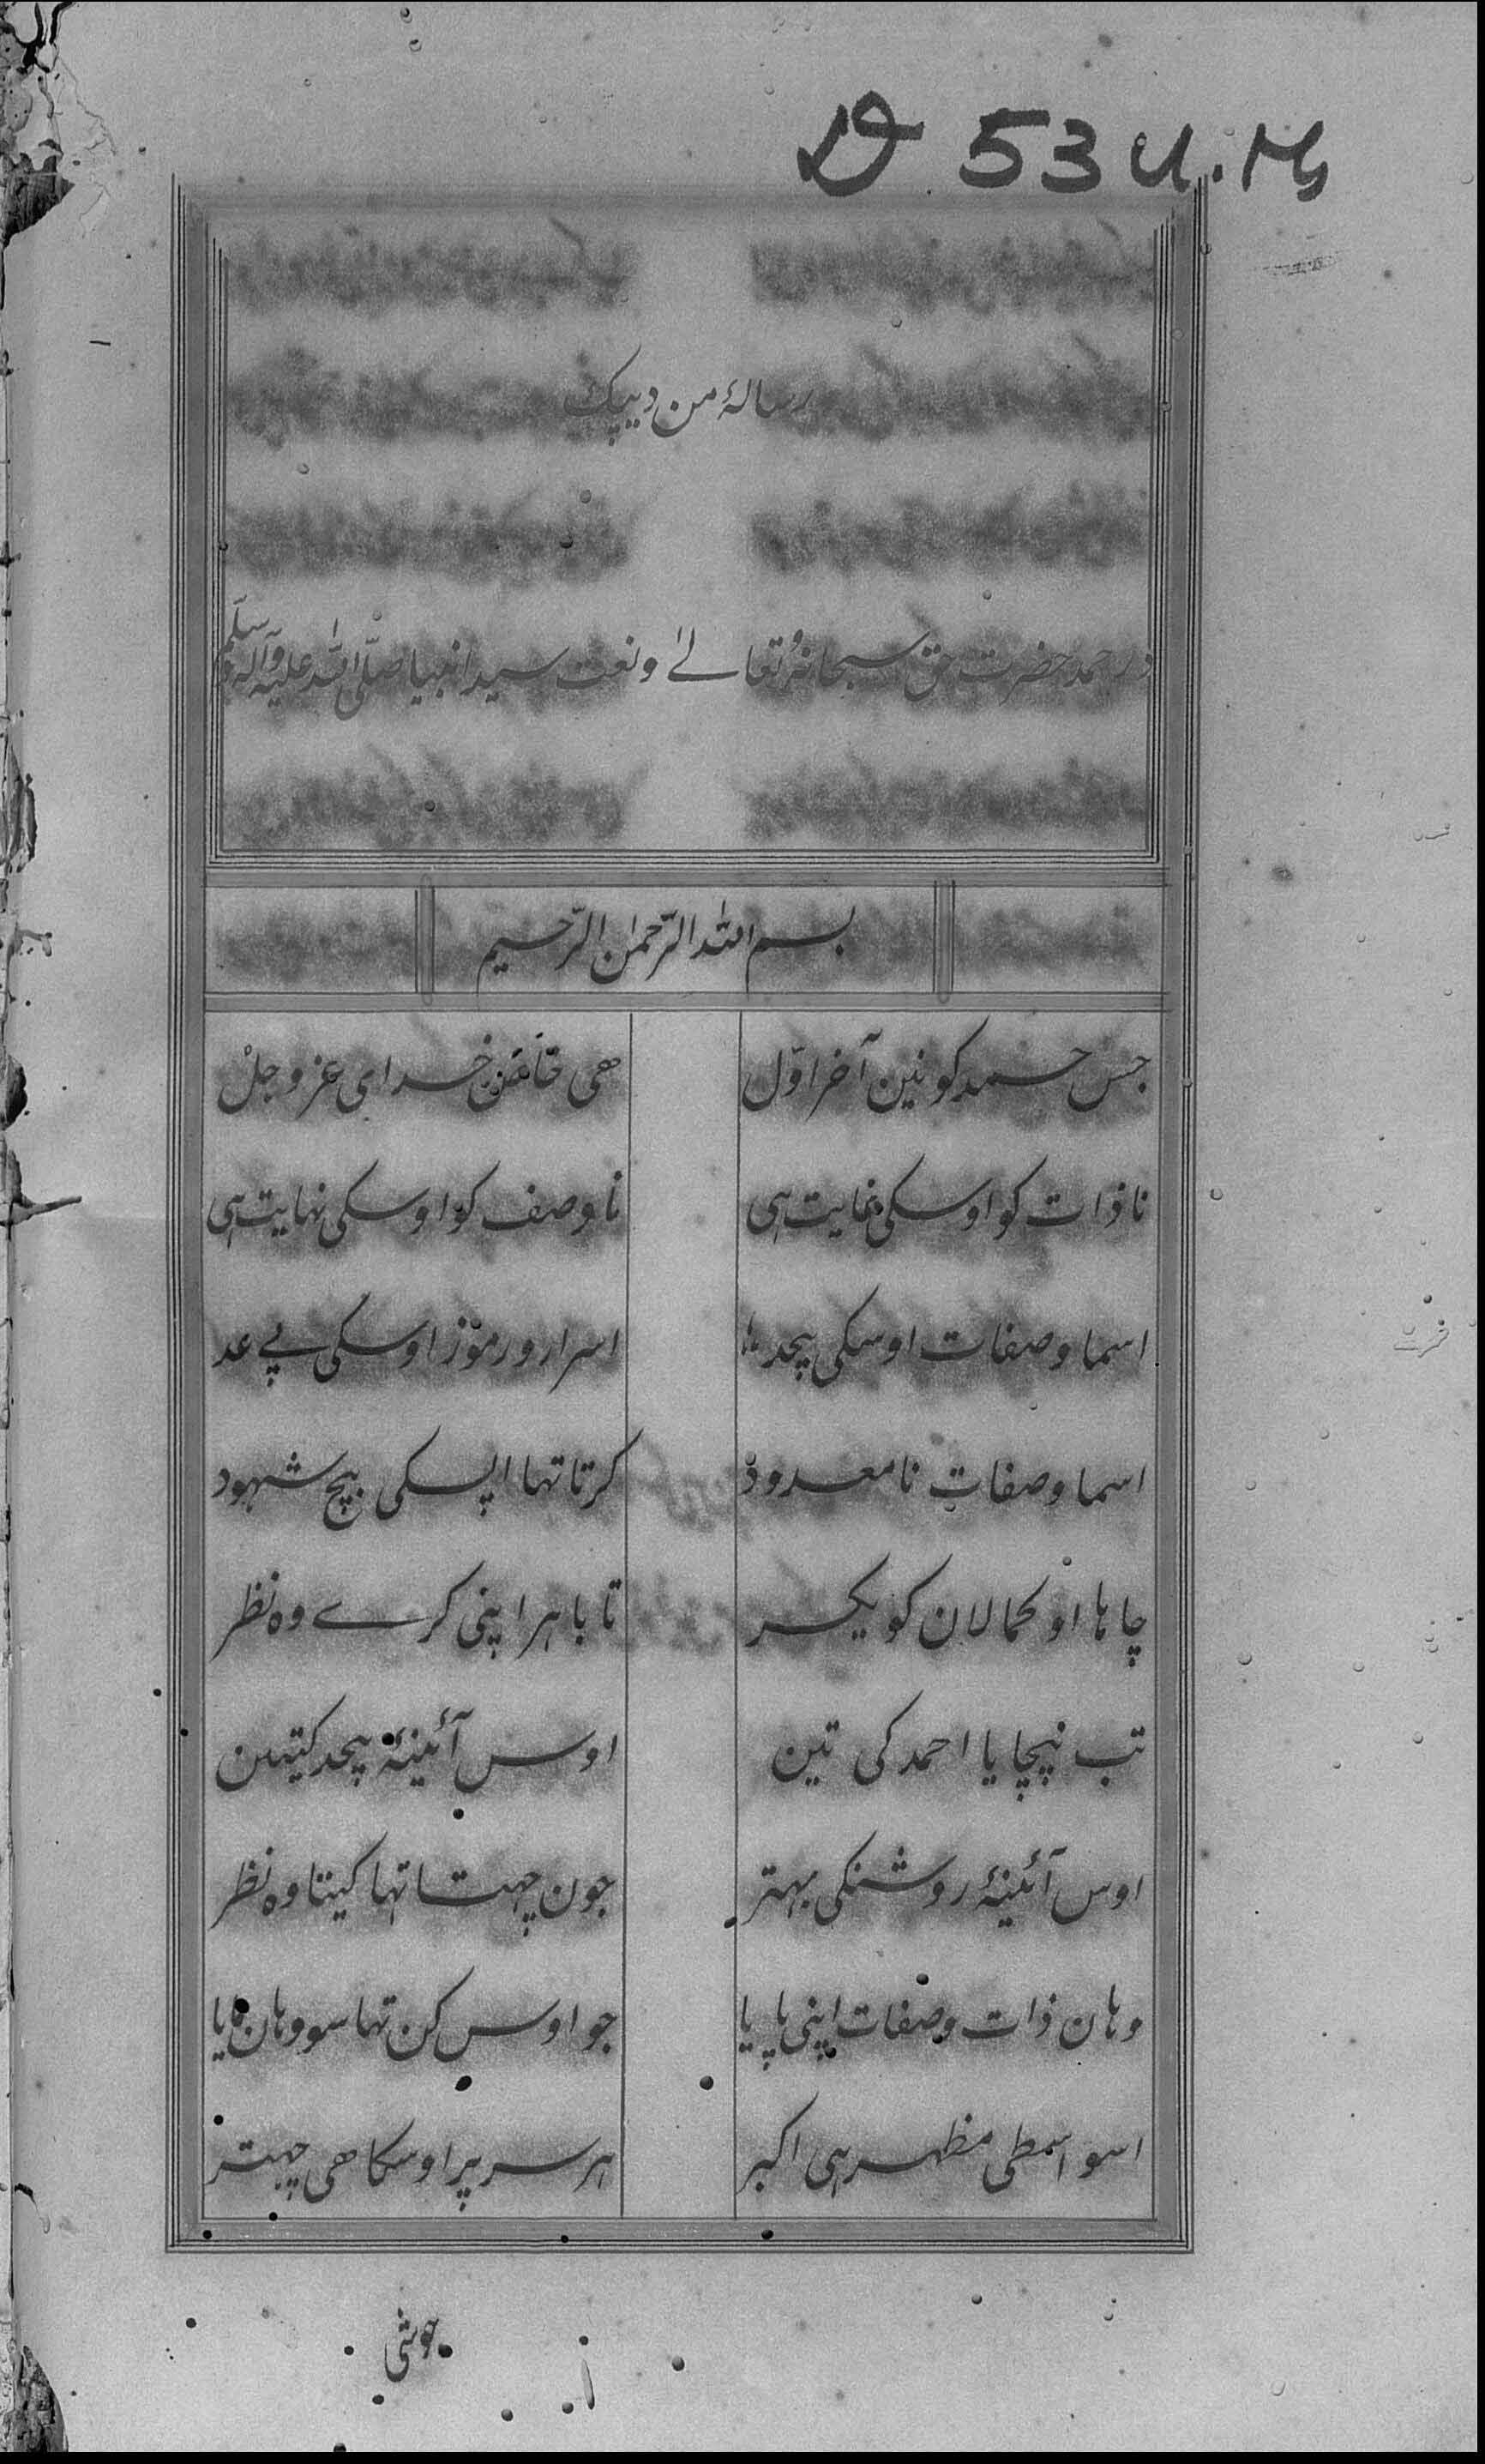 D 53 U.M
رسالۂ من دیپک
در حمد حضرت حق سبحانہٗ تعالےٰ و نعت سید انبیا صلّی اللہ علیہ وآلہ وسلّم
بسم اللہ الرّحمٰن الرّحیم
جس حمد کو نین آخر اوّل ھی خدای عز و جل
نا ذات کو اوسکی غایت ہی نا وصف کو اوسکی نہایت ہی
اسما و صفات اوسکی بیحد اسرار و رموز اوسکی بے عد
اسما و صفاتِ نا معدود کرتا تھا اپسکی بیچ شہود
چاہا او کمالان کو یکسر تا باہر اپنی کرے وہ نظر
تب نپچایا احمد کی تین اوس آئینۂ بیحد کیتین
اوس آئینۂ روشنکی بہتر جون چہتا تھا کیتا وہ نظر
وہان ذات و صفات اپنی پایا جو اوس کن تھا سو وہان پایا
اسو اسطی مظہر ہی اکبر ہر سر پر اوسکا ھی چہتر